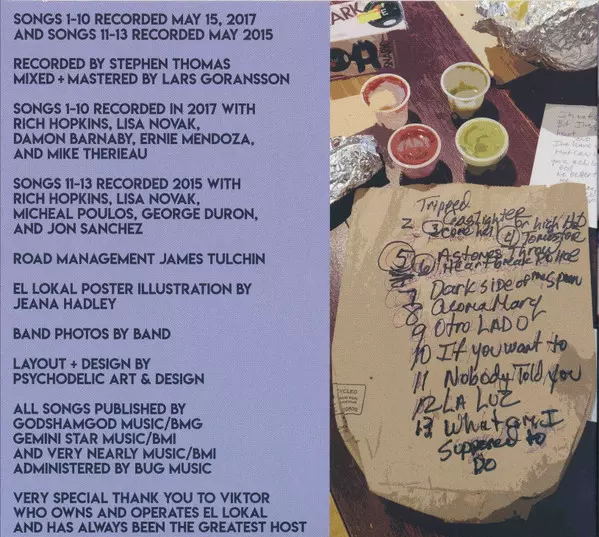 SONGS 1-10 RECORDED MAY 15, 2017
AND SONGS 11-13 RECORDED MAY 2015
RECORDED BY STEPHEN THOMAS
MIXED + MASTERED BY LARS GORANSSON
SONGS 1-10 RECORDED IN 2017 WITH
RICH HOPKINS, LISA NOVAK,
DAMON BARNABY, ERNIE MENDOZA,
AND MIKE THERIEAU
SONGS 11-13 RECORDED 2015 WITH
RICH HOPKINS, LISA NOVAK,
MICHEAL POULOS, GEORGE DURON,
AND JON SANCHEZ
ROAD MANAGEMENT JAMES TULCHIN
EL LOKAL POSTER ILLUSTRATION BY
JEANA HADLEY
BAND PHOTOS BY BAND
LAYOUT + DESIGN BY
PSYCHODELIC ART & DESIGN
ALL SONGS PUBLISHED BY
GODSHAMGOD MUSIC/BMG
GEMINI STAR MUSIC/BMI
AND VERY NEARLY MUSIC/BMI
ADMINISTERED BY BUG MUSIC
VERY SPECIAL THANK YOU TO VIKTOR
WHO OWNS AND OPERATES EL LOKAL
AND HAS ALWAYS BEEN THE GREATEST HOST
ARK
Tripped
2 Gaslighter
3 or high
4
5 A stones Throw
6 Heartbreak Police
7 Dark side of the Spoon
8 Acoma Mary
9 Otro LADO
10 If you want to
11 Nobody Told You
12 LA LUZ
13 What am I
Supposed to
Do